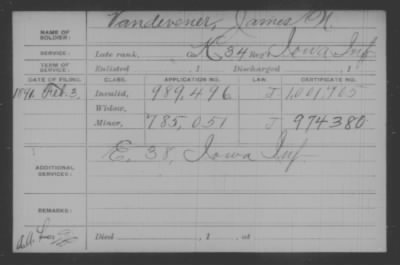 NAME OF SOLDIER: Vandevener, James N.
SERVICE: Late rank, Co. K, 34 Reg't Iowa Inf
TERM OF SERVICE: Enlisted , 1 Discharged , 1
DATE OF FILING. CLASS. APPLICATION NO. LAW. CERTIFICATE NO.
Feb. 3, Invalid, 989,496 J 1,001,765
Widow,
Minor, 785,051 J 974380
E. 38, Iowa Inf.
ADDITIONAL SERVICES:
REMARKS:
Died , 1 , at